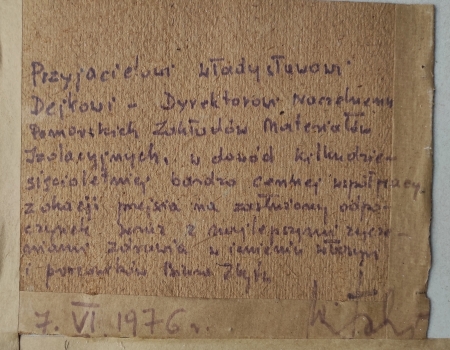 Przyjacielowi Władysławowi
Dejkowi – Dyrektorowi Naczelnemu
Pomorskich Zakładów Materiałów
Izolacyjnych, w dowód kilkudzie-
sięcioletniej bardzo cennej współpracy,
z okazji przejścia na zasłużony odpo-
czynek wraz z najlepszymi życze-
niami zdrowia w imieniu własnym
i pracowników Biura
7. VI 1976 r.